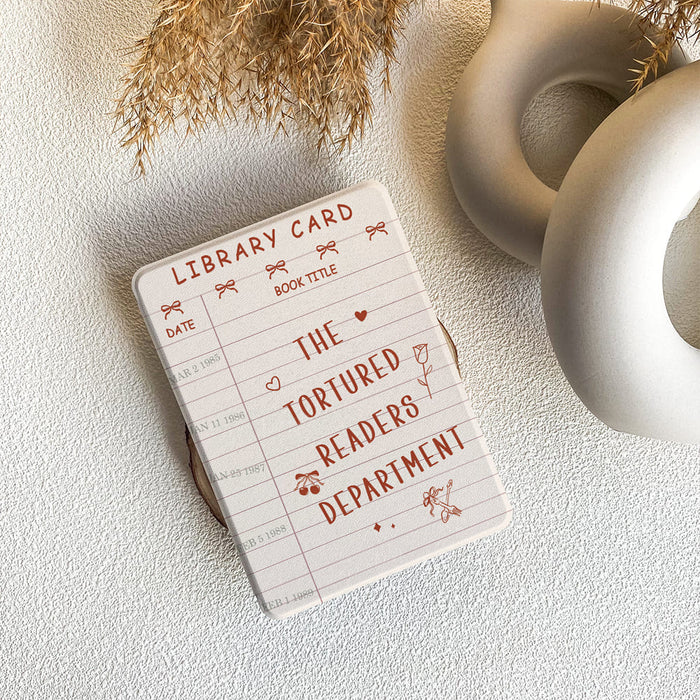 LIBRARY CARD
DATE
BOOK TITLE
MAR 2 1985
THE
TORTURED
AN 11 1986
READERS
AN 23 1987
DEPARTMENT
EB 5 1988
EB 1 1989